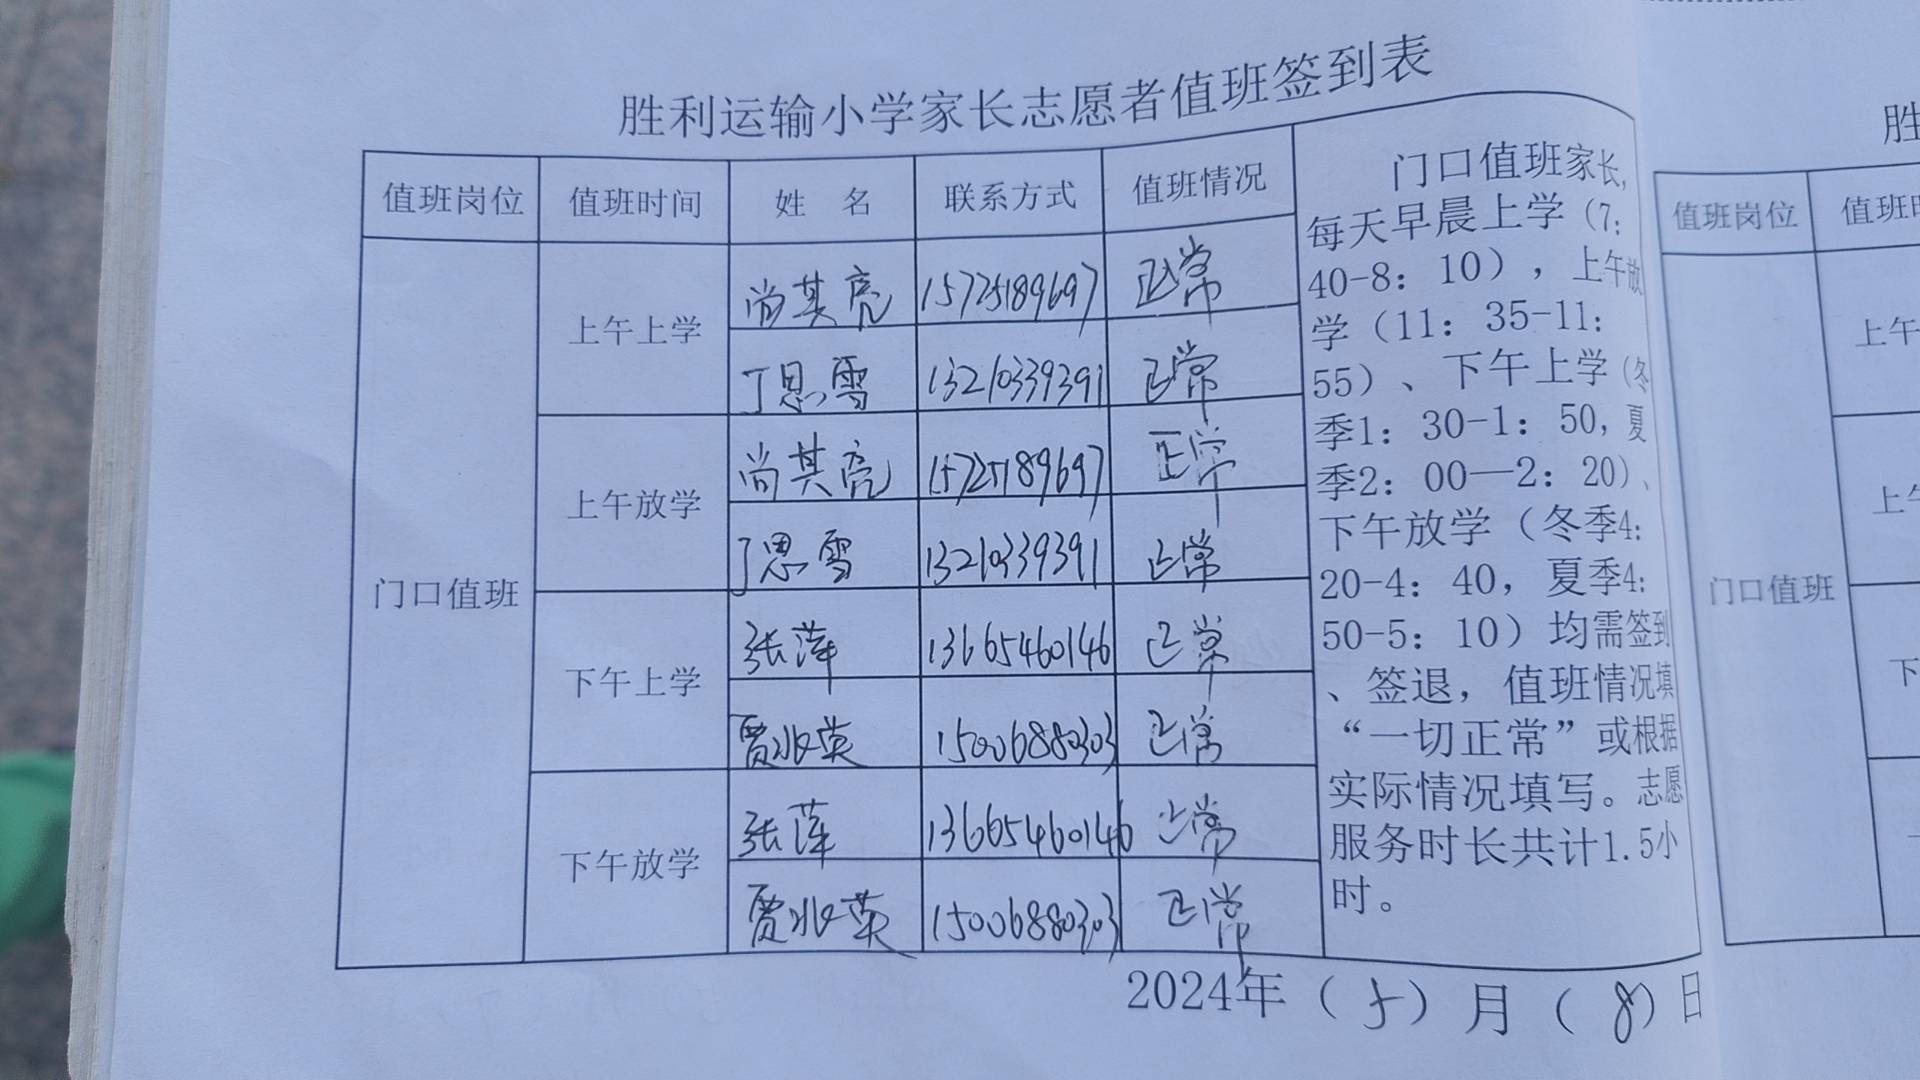 胜利运输小学家长志愿者值班签到表
值班岗位 值班时间 姓 名 联系方式 值班情况
门口值班
上午上学
尚其亮 15725189697 正常
丁思雪 13210339391 正常
上午放学
尚其亮 15725189697 正常
丁思雪 13210339391 正常
下午上学
张萍 13665460146 正常
贾兆英 15006880303 正常
下午放学
张萍 13665460146 正常
贾兆英 15006880303 正常
门口值班家长,
每天早晨上学（7:
40-8：10），上午放
学（11：35-11：
55）、下午上学（冬
季1：30-1：50,夏
季2：00—2：20）、
下午放学（冬季4:
20-4：40，夏季4:
50-5：10）均需签到
、签退，值班情况填
“一切正常”或根据
实际情况填写。志愿
服务时长共计1.5小
时。
2024年（5）月（8）日
胜
值班岗位 值班时
门口值班
上午
上午
下